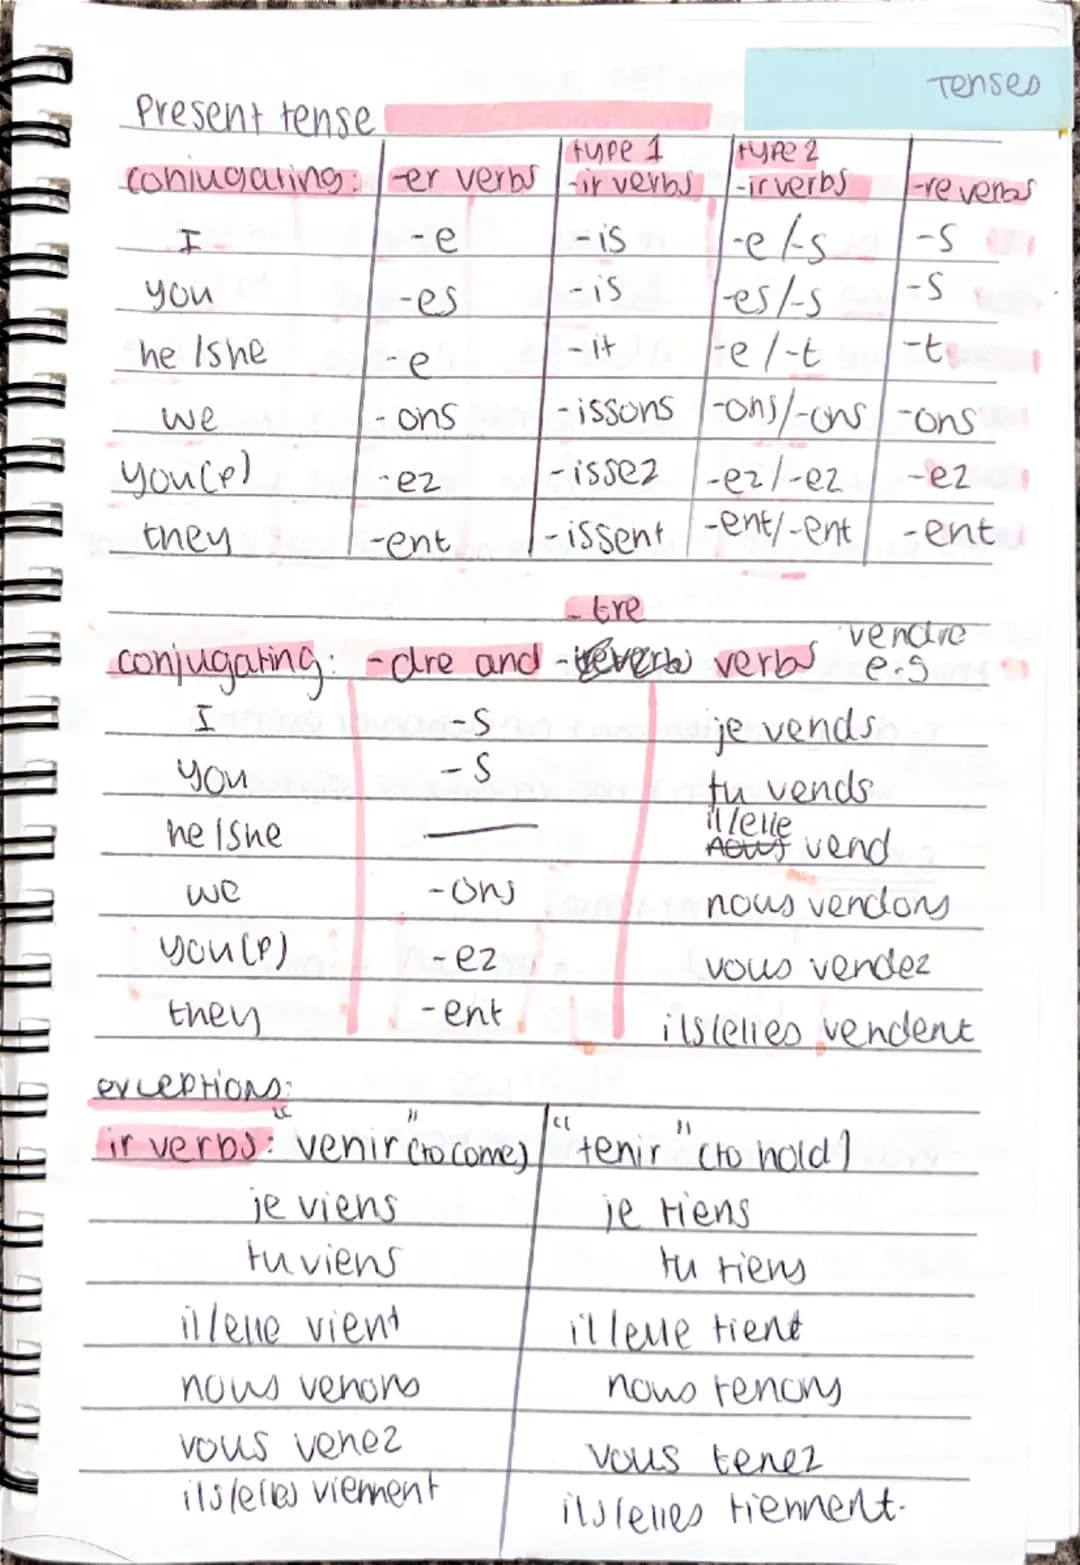 Tenses
Present tense
type 1 type 2
conjugating: -er verbs -ir verbs -ir verbs -re verbs
I -e -is -e/-s -s
you -es -is -es/-s -s
he/she -e -it -e/-t -t
we -ons -issons -ons/-ons -ons
you(p) -ez -issez -ez/-ez -ez
they -ent -issent -ent/-ent -ent
-tre
conjugating: -dre and verbs vendre
e.g
I -s je vends
you -s tu vends
il/elle
he/she — nous vend
we -ons nous vendons
you(p) -ez vous vendez
they -ent ils/elles vendent
exceptions:
ir verbs: "venir" (to come) "tenir" (to hold)
je viens je tiens
tu viens tu tiens
il/elle vient il/elle tient
nous venons nous tenons
vous venez vous tenez
ils/elles viennent ils/elles tiennent.